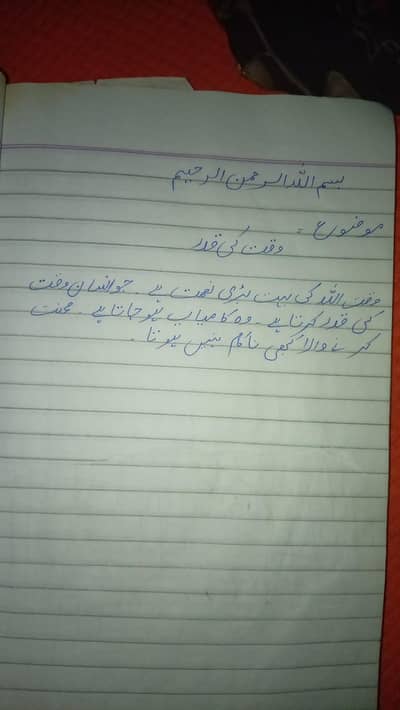 بسم اللہ الرحمن الرحیم
موضوع:
وقت کی قدر
وقت اللہ کی بہت بڑی نعمت ہے۔ جو انسان وقت
کی قدر کرتا ہے۔ وہ کامیاب ہو جاتا ہے۔ محنت
کرنے والا کبھی ناکام نہیں ہوتا۔